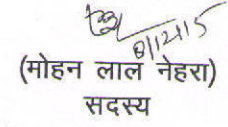 8/12/15
(मोहन लाल नेहरा)
सदस्य